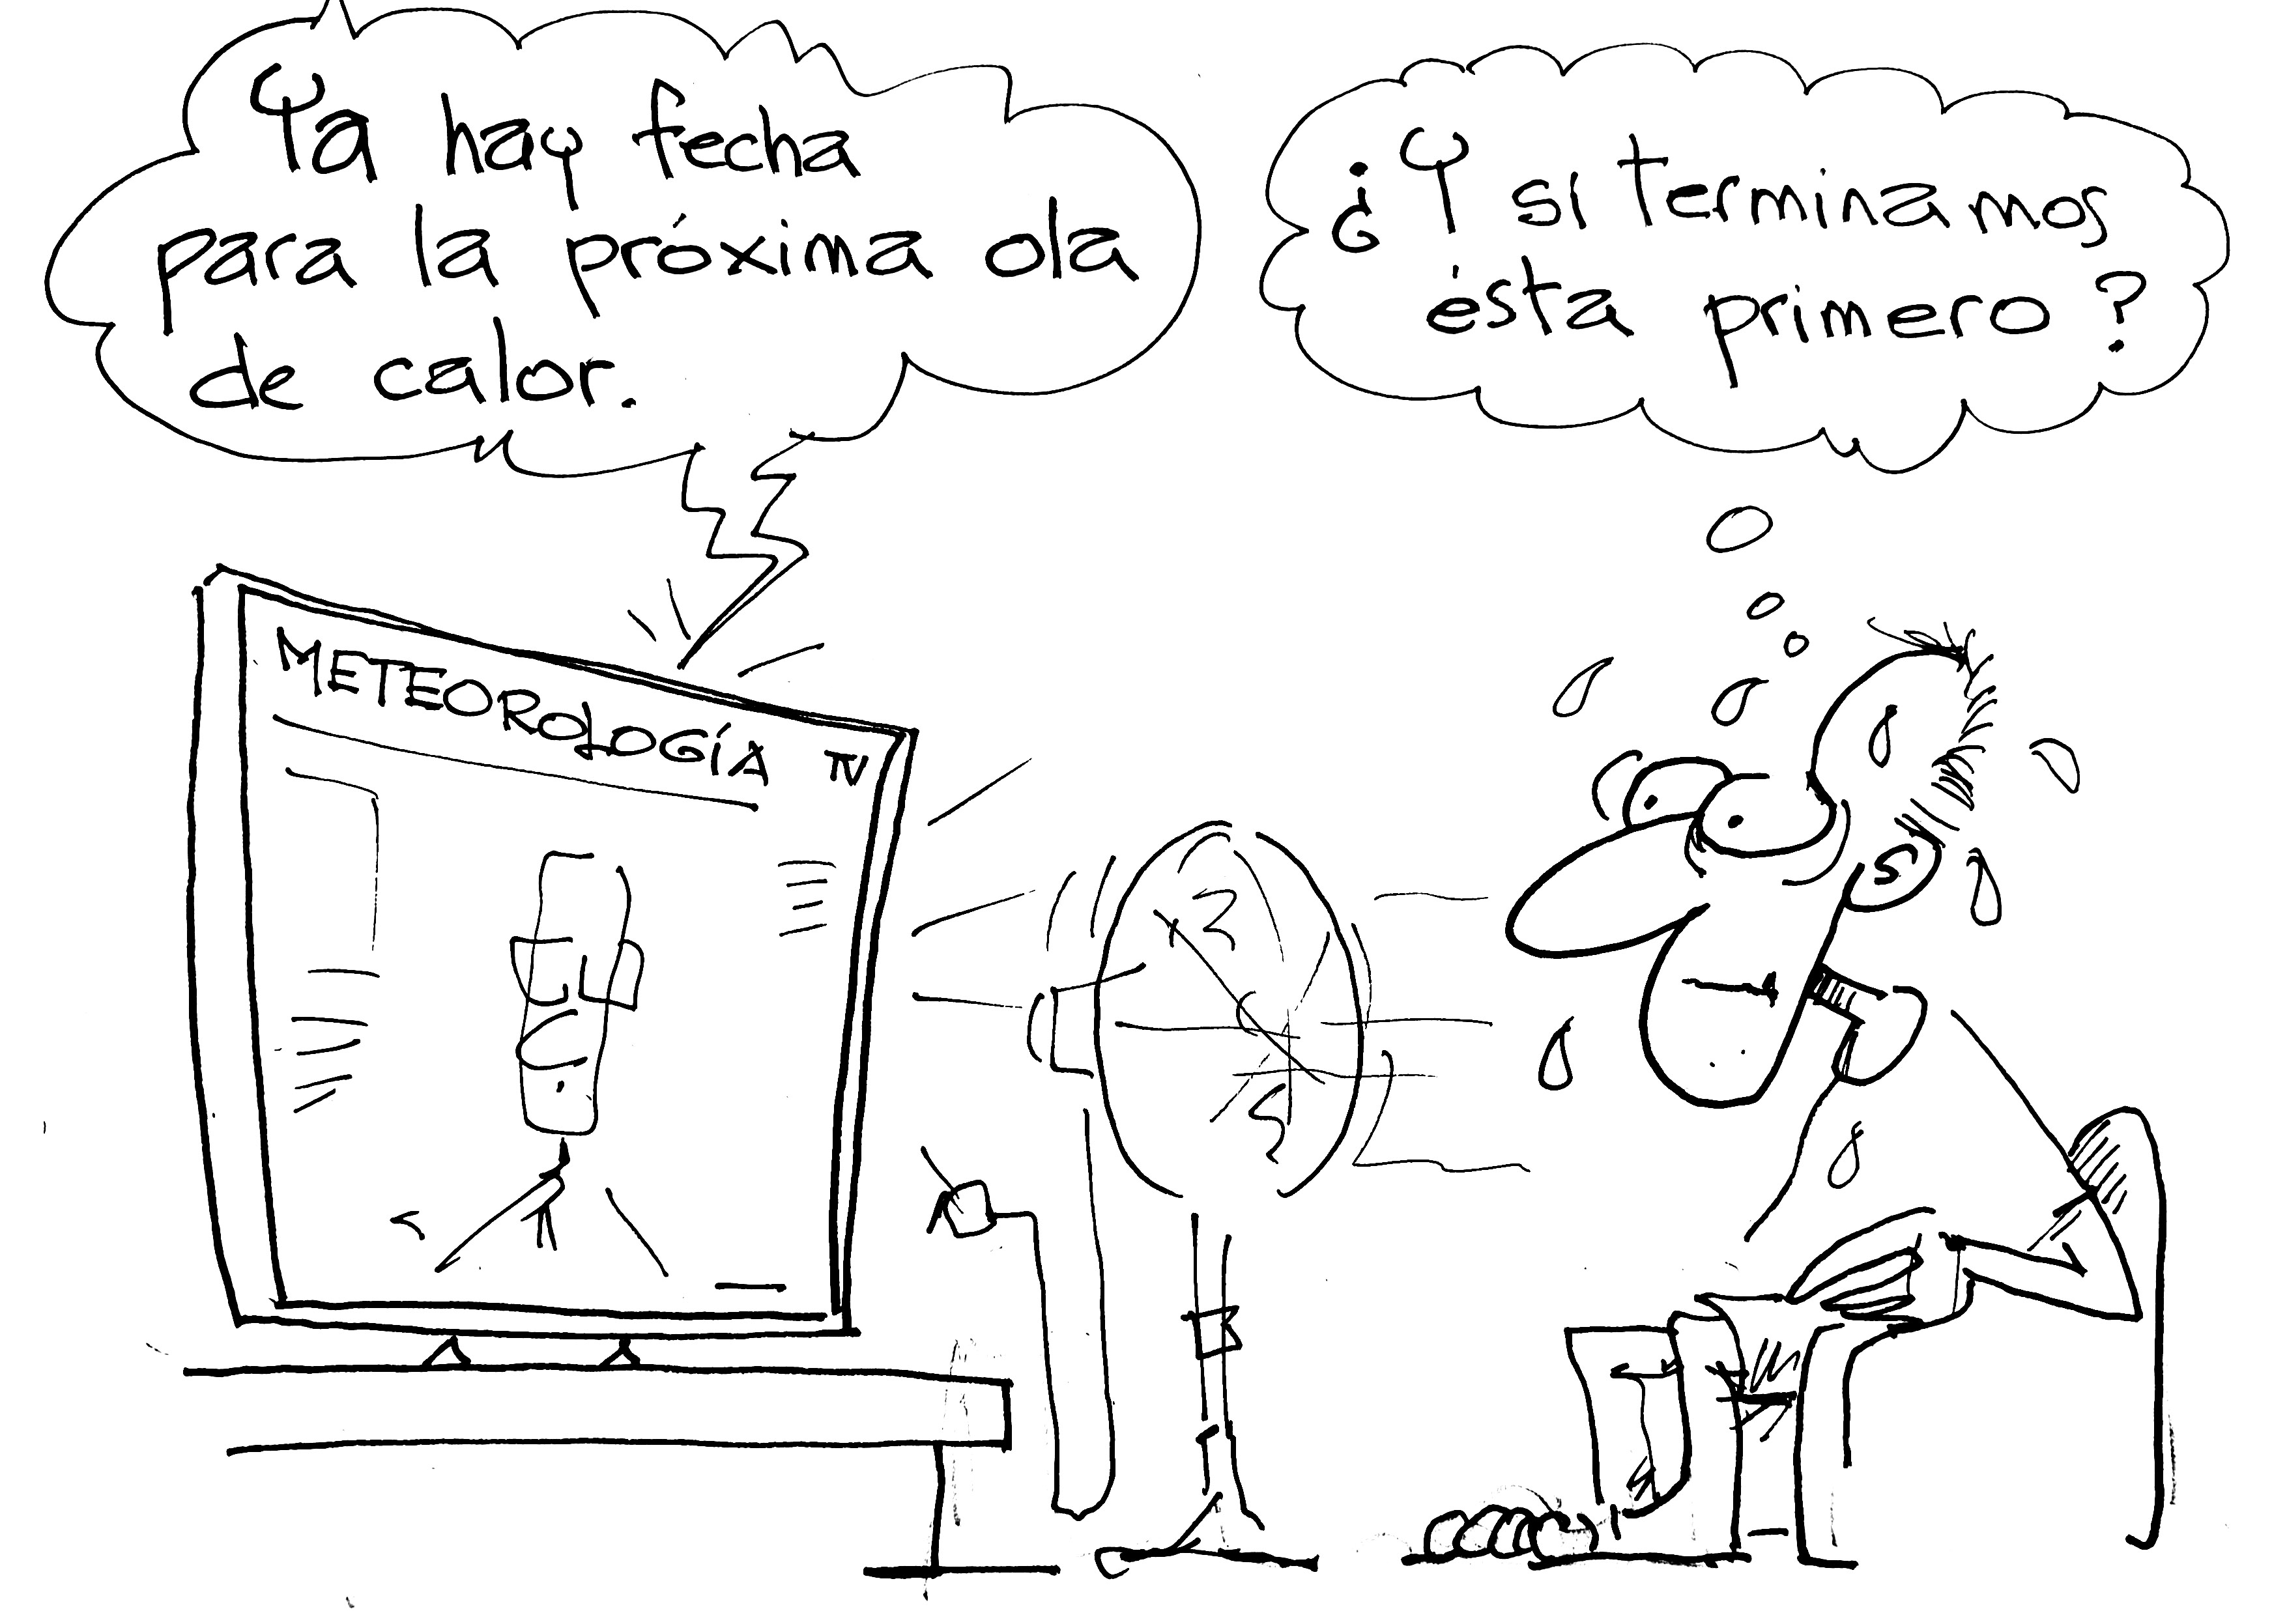 Ya hay fecha
para la próxima ola
de calor.
¿Y si terminamos
ésta primero?
METEOROLOGÍA TV